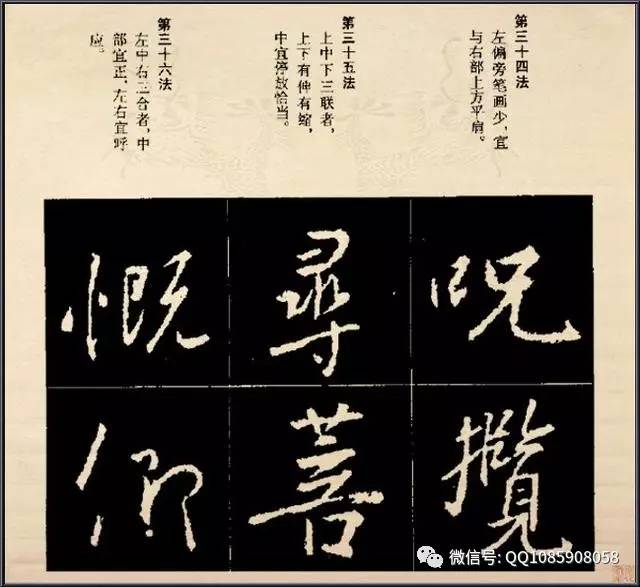 第三十四法
左偏旁笔画少，宜
与右部上方平肩。
第三十五法
上中下三联者，
上下有伸有缩，
中宜停放恰当。
第三十六法
左中右三合者，中
部宜正，左右宜呼
应。
呪
攬
尋
菩
慨
仰
微信号: QQ1085908058